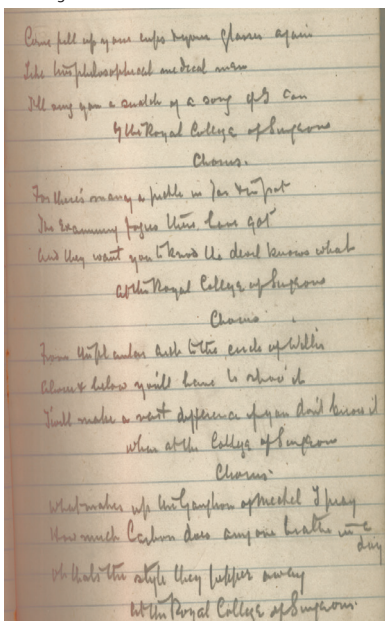 Come fill up your cups & your glasses again
Like true philosophical medical men
I'll sing you a snatch of a song if I can
Of the Royal College of Surgeons
Chorus.
For there's many a pickle in jar & in pot
The Examining fogies there have got
And they want you to know the devil knows what
At the Royal College of Surgeons
Chorus
From the plantar arch to the circle of Willis
above & below you'll have to show it
T'will make a vast difference if you don't know it
When at the College of Surgeons
Chorus.
What makes up the Ganglion of Meckel I pray
How much Carbon does any one breathe in a day
oh that's the style they pepper away
At the Royal College of Surgeons.